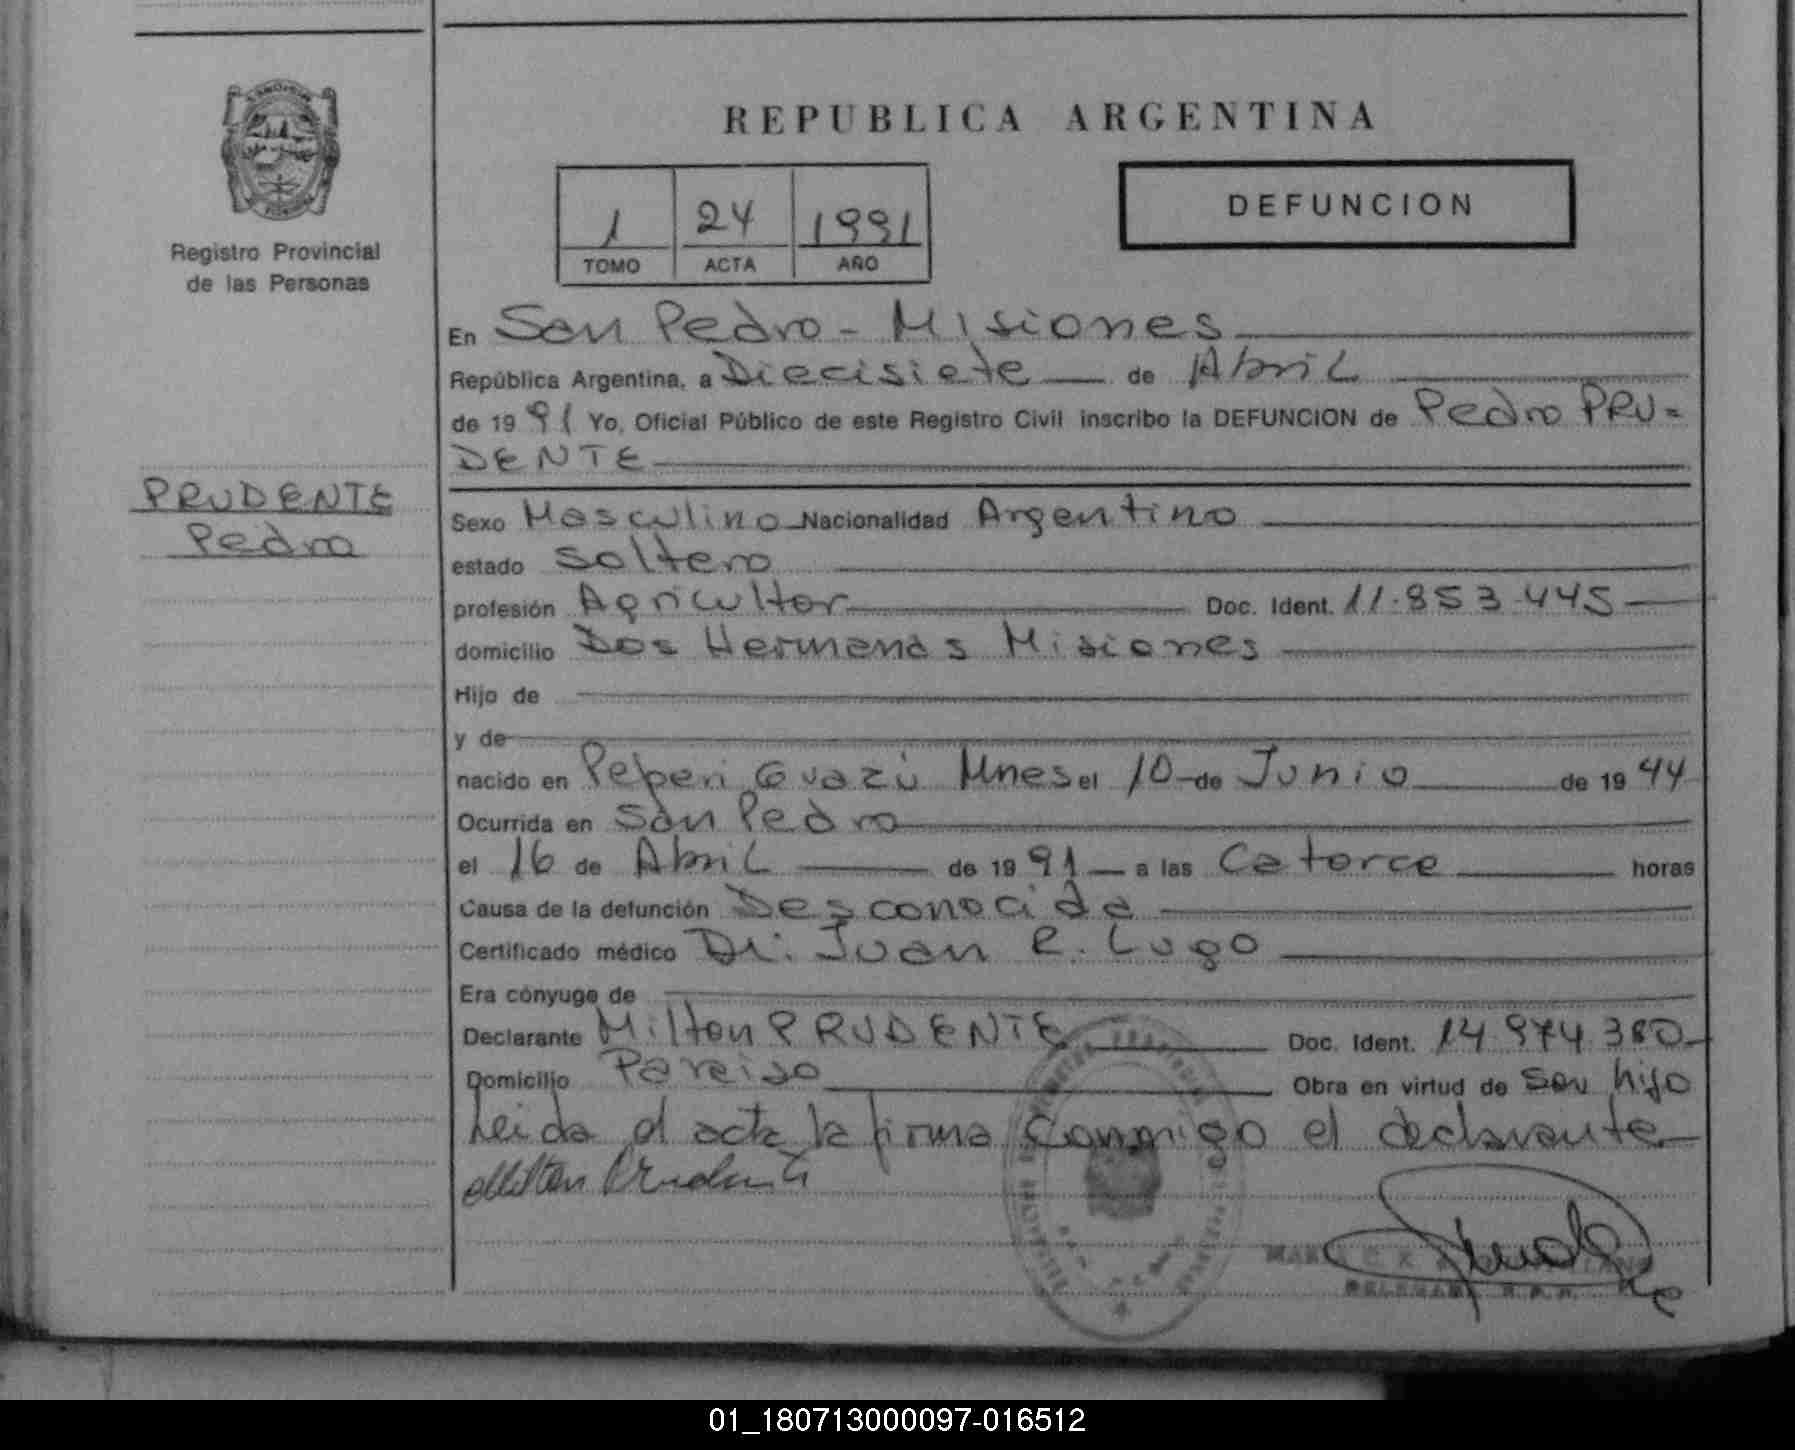 REPUBLICA ARGENTINA
1 24 1991
TOMO ACTA AÑO
DEFUNCION
Registro Provincial
de las Personas
PRUDENTE
Pedro
En San Pedro - Misiones
República Argentina, a Diecisiete de Abril
de 1991 Yo, Oficial Público de este Registro Civil inscribo la DEFUNCION de Pedro PRU=
DENTE
Sexo Masculino Nacionalidad Argentino
estado soltero
profesión Agricultor Doc. Ident. 11.853.445
domicilio Dos Hermanas Misiones
Hijo de
y de
nacido en Peperi Guazú Mnes el 10 de Junio de 1944
Ocurrida en San Pedro
el 16 de Abril de 1991 a las Catorce horas
Causa de la defunción Desconocida
Certificado médico Dr. Juan R. Lugo
Era cónyuge de
Declarante Milton PRUDENTE Doc. Ident. 14.974.380
Domicilio Paraiso Obra en virtud de ser hijo
Leida el acta la firma conmigo el declarante
Milton Prudente
01_180713000097-016512